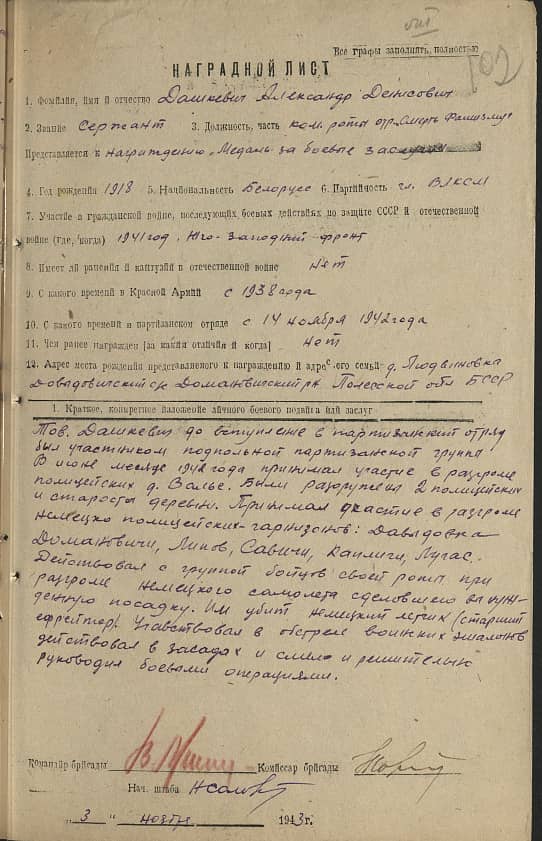 VIII
102
Все графы заполнять, полностью
НАГРАДНОЙ ЛИСТ
1. Фамилия, имя и отчество Дашкевич Александр Денисович
2. Звание Сержант 3. Должность, часть ком. роты отр. „Смерть Фашизму"
Представляется к награждению „Медаль за боевые заслуги
4. Год рождения 1918 5. Национальность Белорусс 6. Партийность чл. ВЛКСМ
7. Участие в гражданской войне, последующих боевых действиях по защите СССР и отечественной
войне (где, когда) 1941 год. Юго-Западный фронт
8. Имеет ли ранения и контузии в отечественной войне Нет
9. С какого времени в Красной Армии с 1938 года
10. С какого времени в партизанском отряде с 14 ноября 1942 года
11. Чем ранее награжден [за какия отличия и когда] Нет
12. Адрес места рождения представляемого к награждению и адрес его семьи д. Людвиновка
Давыдовичский с/с Домановичский р-н Полесской обл БССР
1. Краткое, конкретное изложение личного боевого подвига или заслуг
Тов. Дашкевич до вступление в партизанский отряд
был участником подпольной партизанской группы
В июне месяце 1942 года принимал участие в разгроме
полицейских д. Валье. Были разоружены 2 полицейских
и старосты деревни. Принимал участие в разгроме
немецко полицейских-гарнизонов: Давыдовка
Домановичи, Липов, Савичи, Капличи, Лугас.
Действовал с группой бойцов своей роты при
разгроме немецкого самолета сделовшего вынуж-
денную посадку. Им убит немецкий летчик (старший
ефрейтор). Учавствовал в обстреле воинских эшалонов
действовал в засадах и смело и решительно
руководил боевыми операциями.
Командир бригады Комиссар бригады
Нач. штаба
„ 3 " ноября 1943 г.